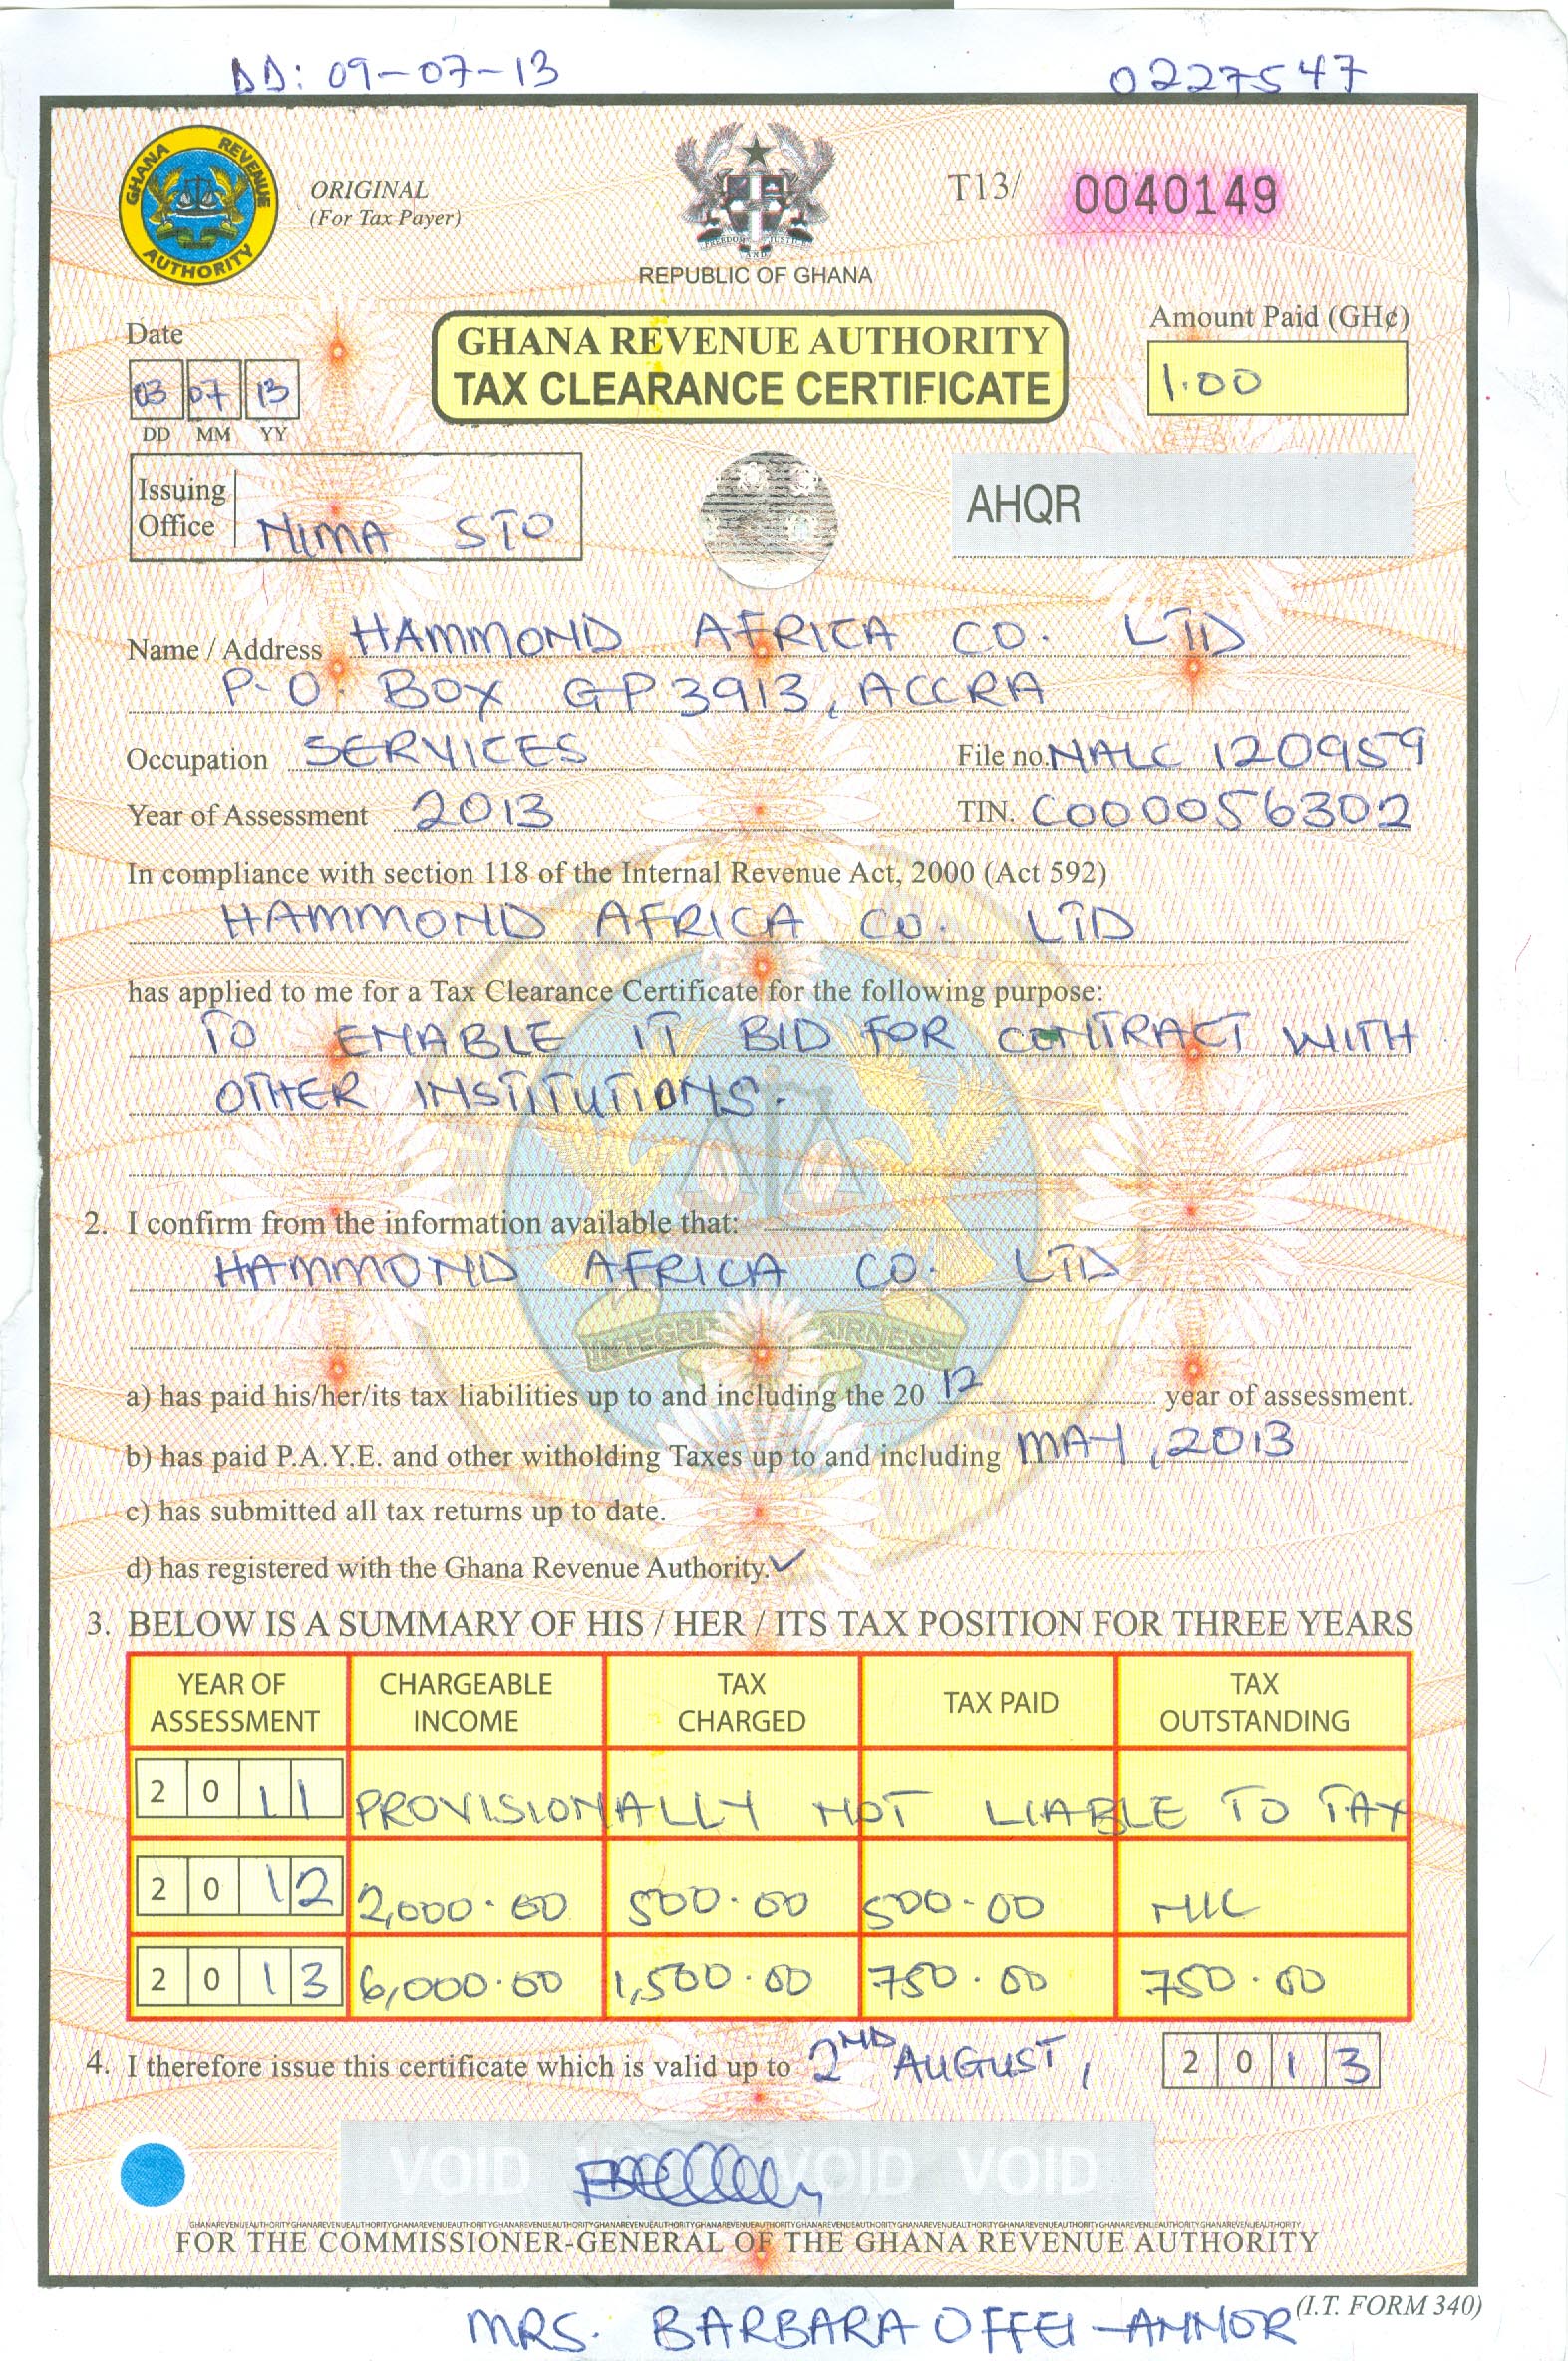 DD: 09-07-13
0227547
GHANA REVENUE AUTHORITY
ORIGINAL
(For Tax Payer)
FREEDOM AND JUSTICE
REPUBLIC OF GHANA
T13/ 0040149
Date
03 07 13
DD MM YY
GHANA REVENUE AUTHORITY
TAX CLEARANCE CERTIFICATE
Amount Paid (GH¢)
1.00
Issuing Office NIMA STO
AHQR
Name / Address HAMMOND AFRICA CO. LTD
P.O. BOX GP 3913, ACCRA
Occupation SERVICES File no. NALC 120959
Year of Assessment 2013 TIN. C000056302
In compliance with section 118 of the Internal Revenue Act, 2000 (Act 592)
HAMMOND AFRICA CO. LTD
has applied to me for a Tax Clearance Certificate for the following purpose:
TO ENABLE IT BID FOR CONTRACT WITH
OTHER INSTITUTIONS.
2. I confirm from the information available that:
HAMMOND AFRICA CO. LTD
INTEGRITY FAIRNESS
a) has paid his/her/its tax liabilities up to and including the 20 12 year of assessment.
b) has paid P.A.Y.E. and other witholding Taxes up to and including MAY, 2013
c) has submitted all tax returns up to date.
d) has registered with the Ghana Revenue Authority. ✓
3. BELOW IS A SUMMARY OF HIS / HER / ITS TAX POSITION FOR THREE YEARS
YEAR OF ASSESSMENT CHARGEABLE INCOME TAX CHARGED TAX PAID TAX OUTSTANDING
2011 PROVISIONALLY NOT LIABLE TO TAX
2012 2,000.00 500.00 500.00 NIL
2013 6,000.00 1,500.00 750.00 750.00
4. I therefore issue this certificate which is valid up to 2ND AUGUST, 2013
VOID VOID VOID VOID
GHANAREVENUEAUTHORITYGHANAREVENUEAUTHORITYGHANAREVENUEAUTHORITY
FOR THE COMMISSIONER-GENERAL OF THE GHANA REVENUE AUTHORITY
(I.T. FORM 340)
MRS. BARBARA OFFEI-ANNOR